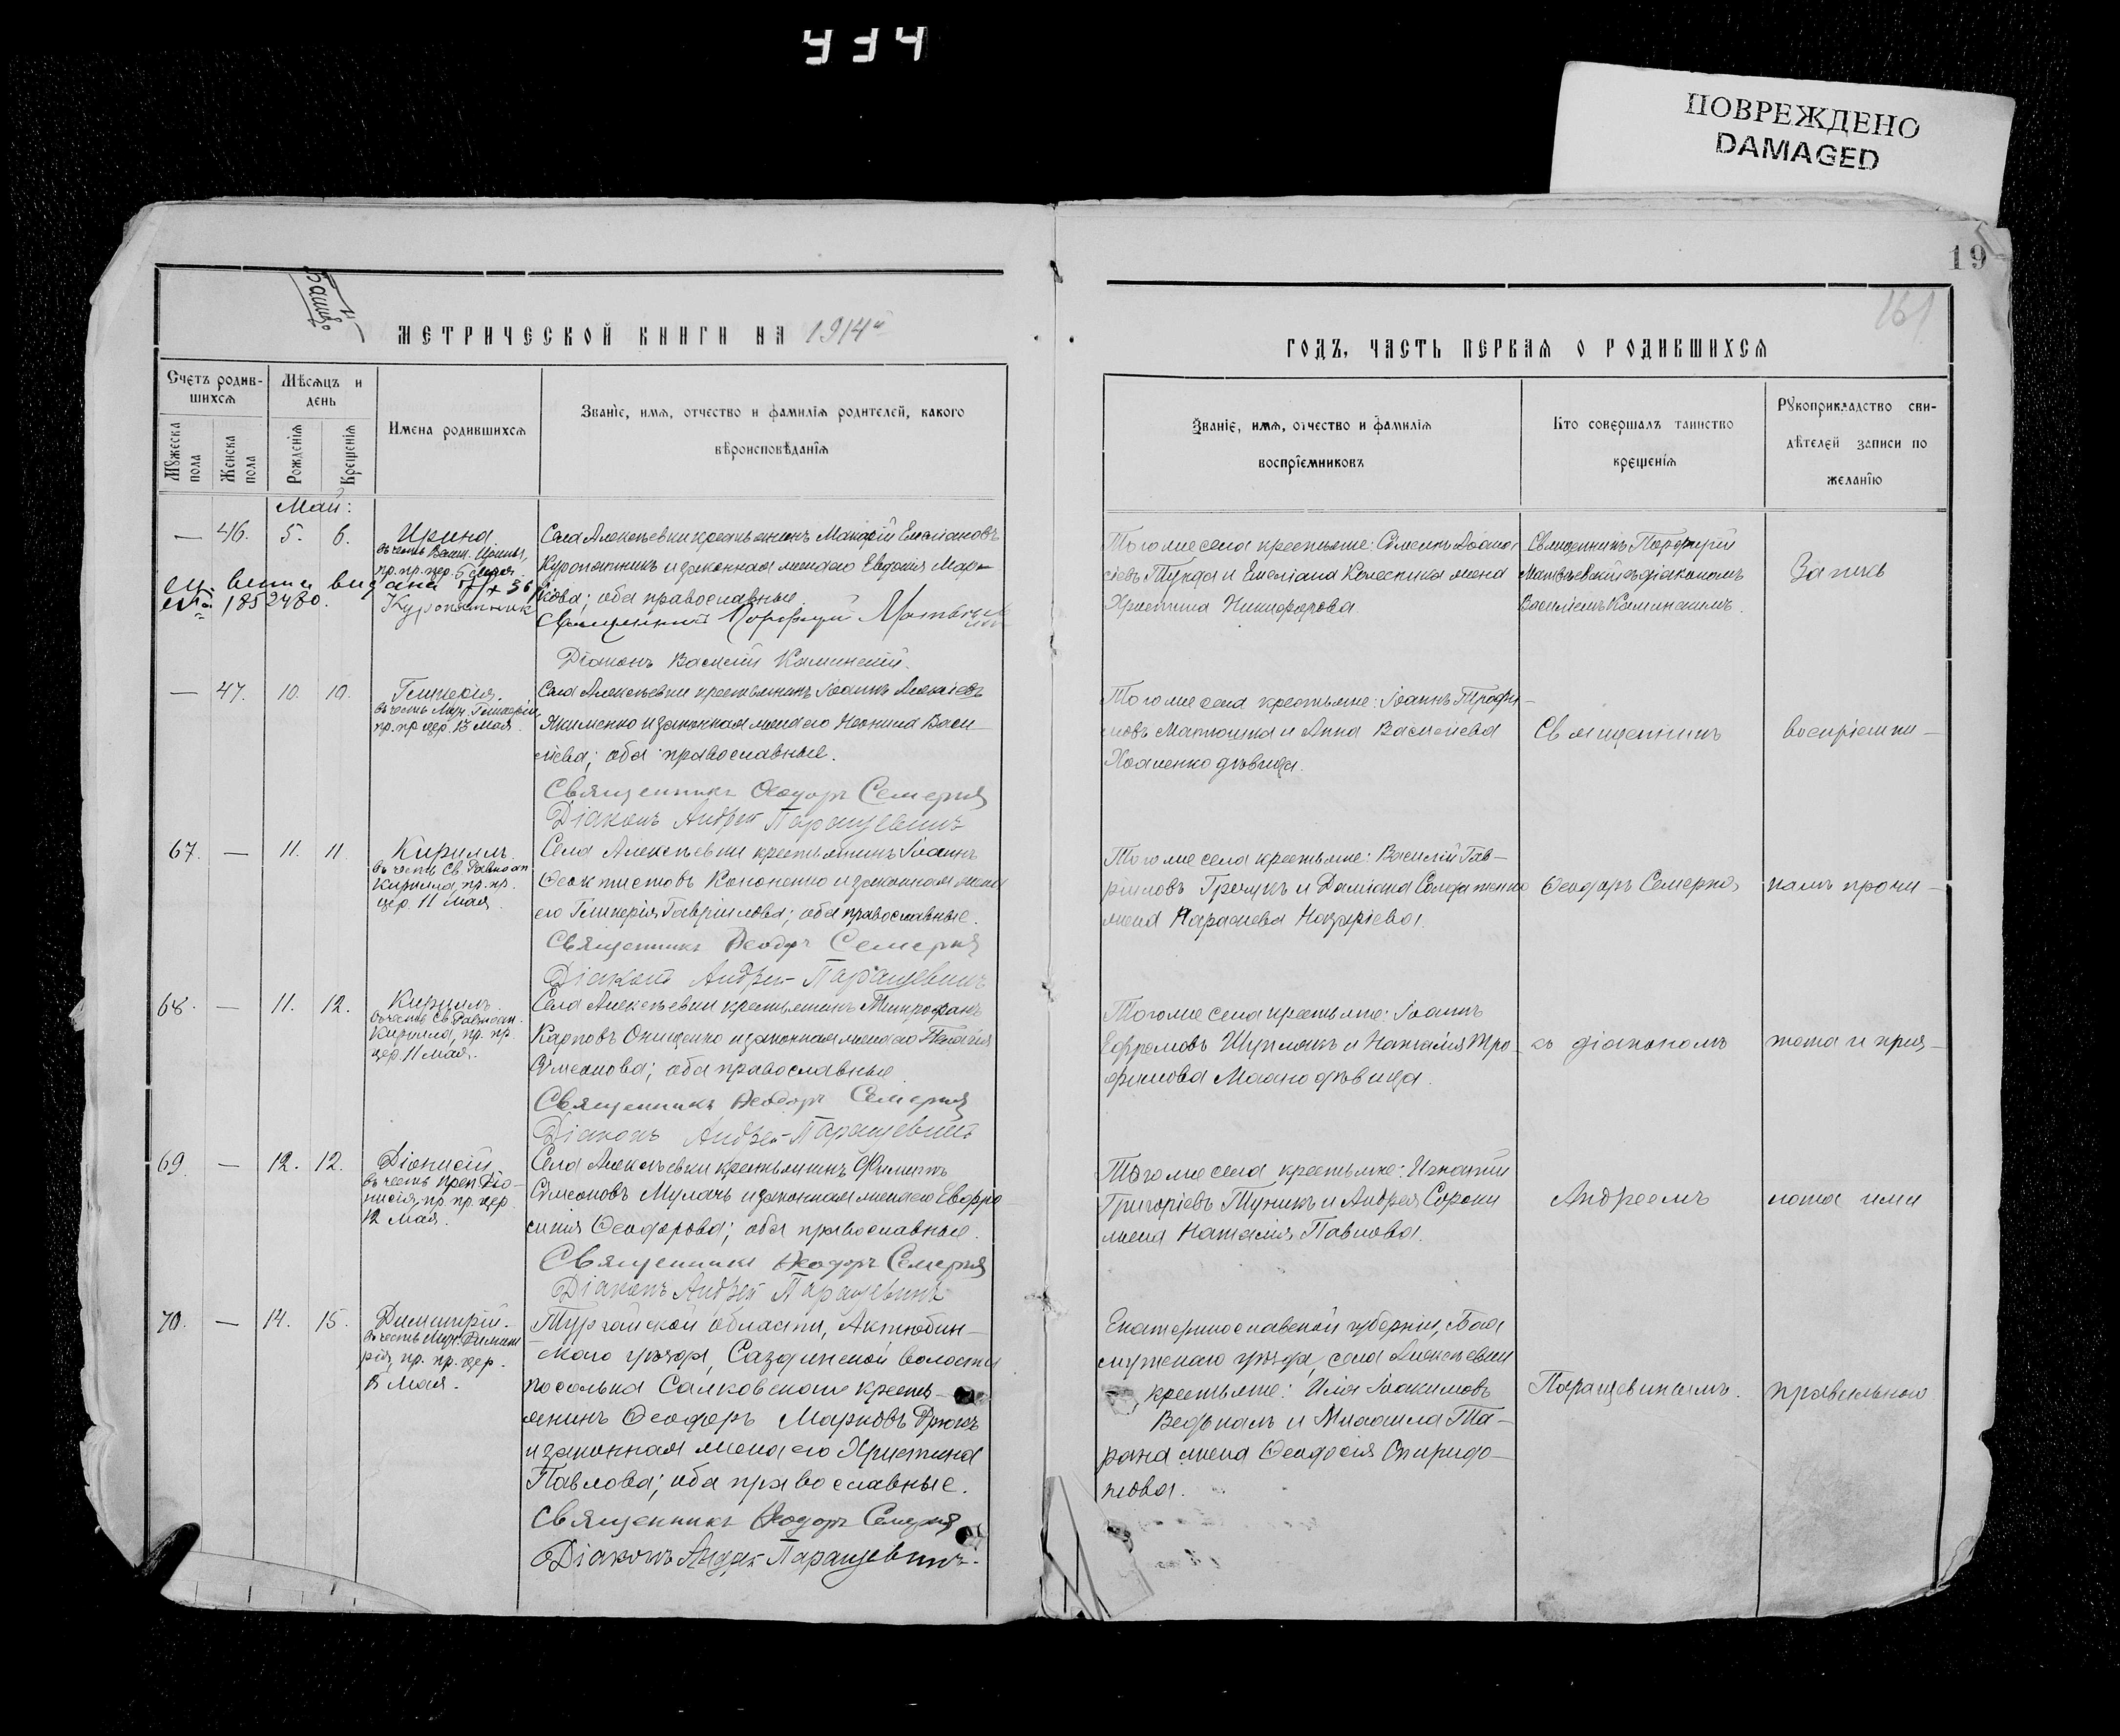 ПОВРЕЖДЕНО
DAMAGED
19
161
МЕТРИЧЕСКОЙ КНИГИ НА 1914й
ГОДЪ, ЧАСТЬ ПЕРВАЯ О РОДИВШИХСЯ
Счетъ родив-
шихся
Мужеска пола
Женска пола
Мѣсяцъ и
день
Рожденія
Крещенія
Имена родившихся
Званіе, имя, отчество и фамилія родителей, какого
вѣроисповѣданія
Званіе, имя, отчество и фамилія
воспріемниковъ
Кто совершалъ таинство
крещенія
Рукоприкладство сви-
дѣтелей записи по
желанію
Май:
— 46. 5. 6. Ирина
въ честь Велик. Ирины,
пр. пр. цер. 5 Мая
185 2480.
Куропятник
Села Алексѣевки крестьянинъ Макарій Емеліановъ
Куропятникъ и законная жена его Евдокія Мар-
кова; оба православные.
Священникъ Порфирій
Діаконъ Василій Каминскій.
Того же села крестьяне: Сѵмеонъ Аѳана-
сіевъ Тунда и Емеліана Колесника жена
Христина Никифорова.
Священникъ Порфирій
Матвѣевскій съ діакономъ
Василіемъ Каминскимъ.
Запись
— 47. 10. 10. Гликерія.
въ честь Муч. Гликеріи,
пр. пр. цер. 13 мая.
Села Алексѣевки крестьянинъ Іоаннъ Алексіевъ
Якименко и законная жена его Неонила Васи-
ліева; оба православные.
Священникъ Ѳеодоръ Семерня
Діаконъ Андрей Паращевинъ
Того же села крестьяне: Іоаннъ Трофи-
мовъ Матюшка и Анна Василіева
дѣвица.
Священникъ
воспріемни-
67. — 11. 11. Кириллъ.
въ честь Св. Равноап.
Кирилла, пр. пр.
цер. 11 мая.
Села Алексѣевки крестьянинъ Іоаннъ
Ѳеоктистовъ Кононенко и законная жена
его Гликерія Гавріилова; оба православные.
Священникъ Ѳеодоръ Семерня
Діаконъ Андрей Паращевинъ
Того же села крестьяне: Василій Гав-
ріиловъ Гречукъ и Даміана Солдатенко
жена Параскева Назаріева.
Ѳеодоръ Семерня
камъ прочи-
68. — 11. 12. Кириллъ.
въ честь Св. Равноап.
Кирилла, пр. пр.
цер. 11 мая.
Села Алексѣевки крестьянинъ Митрофанъ
Карповъ Онищенко и законная жена его Пелагія
Сѵмеонова; оба православные.
Священникъ Ѳеодоръ Семерня
Діаконъ Андрей Паращевинъ
Того же села крестьяне: Іоаннъ
Ефремовъ Шуплякъ и Наталія Тро-
фимова дѣвица.
съ діакономъ
тана и приз-
69. — 12. 12. Діонисій.
въ честь преп. Діо-
нисія, пр. пр. цер.
12 Мая.
Села Алексѣевки крестьянинъ Филиппъ
Сѵмеоновъ Мулачъ и законная жена его Евфро-
синія Ѳеодорова; оба православные.
Священникъ Ѳеодоръ Семерня
Діаконъ Андрей Паращевинъ
Того же села крестьяне: Игнатій
Григоріевъ Тупикъ и Андрея Сороки
жена Наталія Павлова.
Андреемъ
нана ими
70. — 14. 15. Димитрій.
въ честь Муч. Димит-
рія, пр. пр. цер.
15 Мая.
Тургайской области, Актюбин-
скаго уѣзда, Саздинской волости
поселка Салковскаго кресть-
янинъ Ѳеодоръ Марковъ Дрюкъ
и законная жена его Христина
Павлова; оба православные.
Священникъ Ѳеодоръ Семерня
Діаконъ Андрей Паращевинъ.
Екатеринославской губерніи, Пав-
лоградскаго уѣзда, села Алексѣевки
крестьяне: Илія Іоакимовъ
Ведькалъ и Михаила Та-
рана жена Ѳеодосія Спиридо-
нова.
Паращевинымъ.
правильною